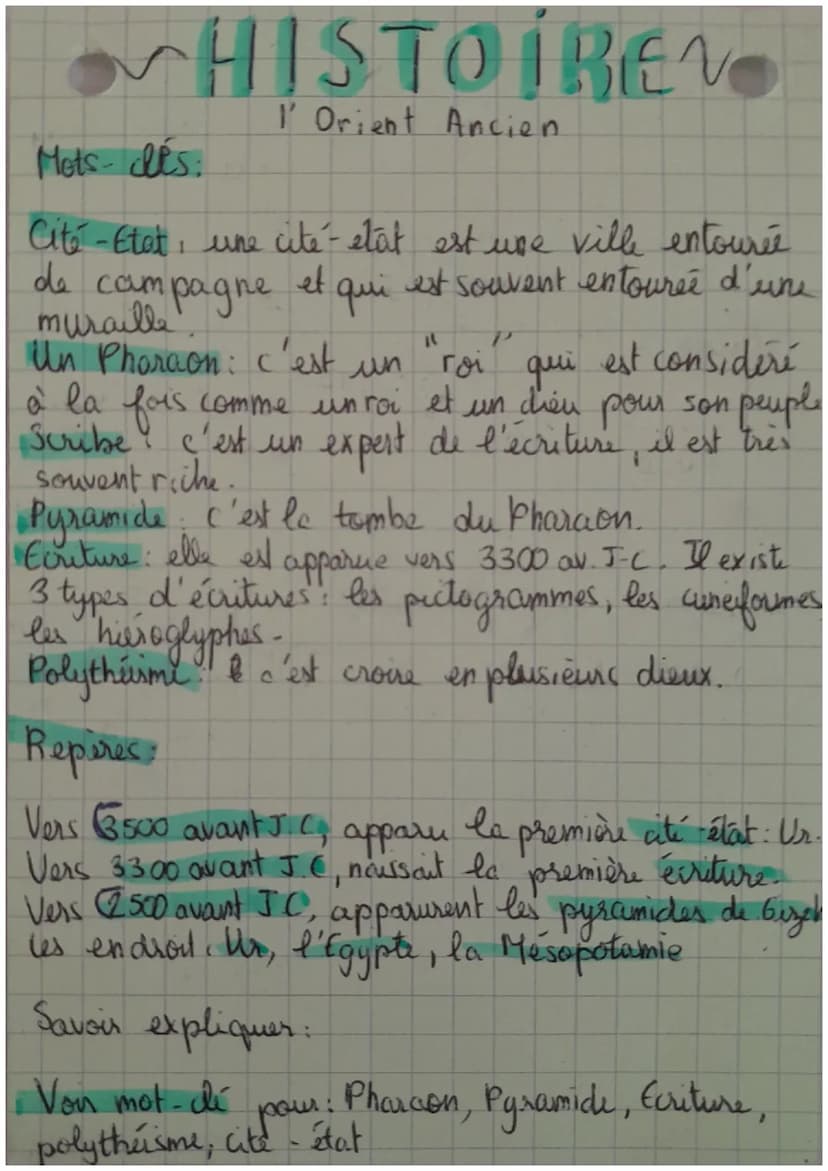 ~HISTOIRE~
l'Orient Ancien
Mots-clés:
Cité-Etat, une cité-état est une ville entourée
de campagne et qui est souvent entourée d'une
muraille.
Un Pharaon: c'est un "roi" qui est considéré
à la fois comme un roi et un dieu pour son peuple
Scribe: c'est un expert de l'écriture, il est très
souvent riche.
Pyramide: c'est le tombe du Pharaon.
Ecriture: elle est apparue vers 3300 av. J-C. Il existe
3 types d'écritures: les pictogrammes, les cuneiformes
les hiéroglyphes.
Polythéisme: c'est croire en plusieurs dieux.
Repères:
Vers 3500 avant J.C, apparu la première cité-état: Ur.
Vers 3300 avant J.C, naissait la première écriture.
Vers 2500 avant J C, apparurent les pyramides de Gizeh
les endroit: Ur, l'Egypte, la Mésopotamie
Savoir expliquer:
Voir mot-clé pour: Pharaon, Pyramide, Ecriture,
polythéisme, cité-état